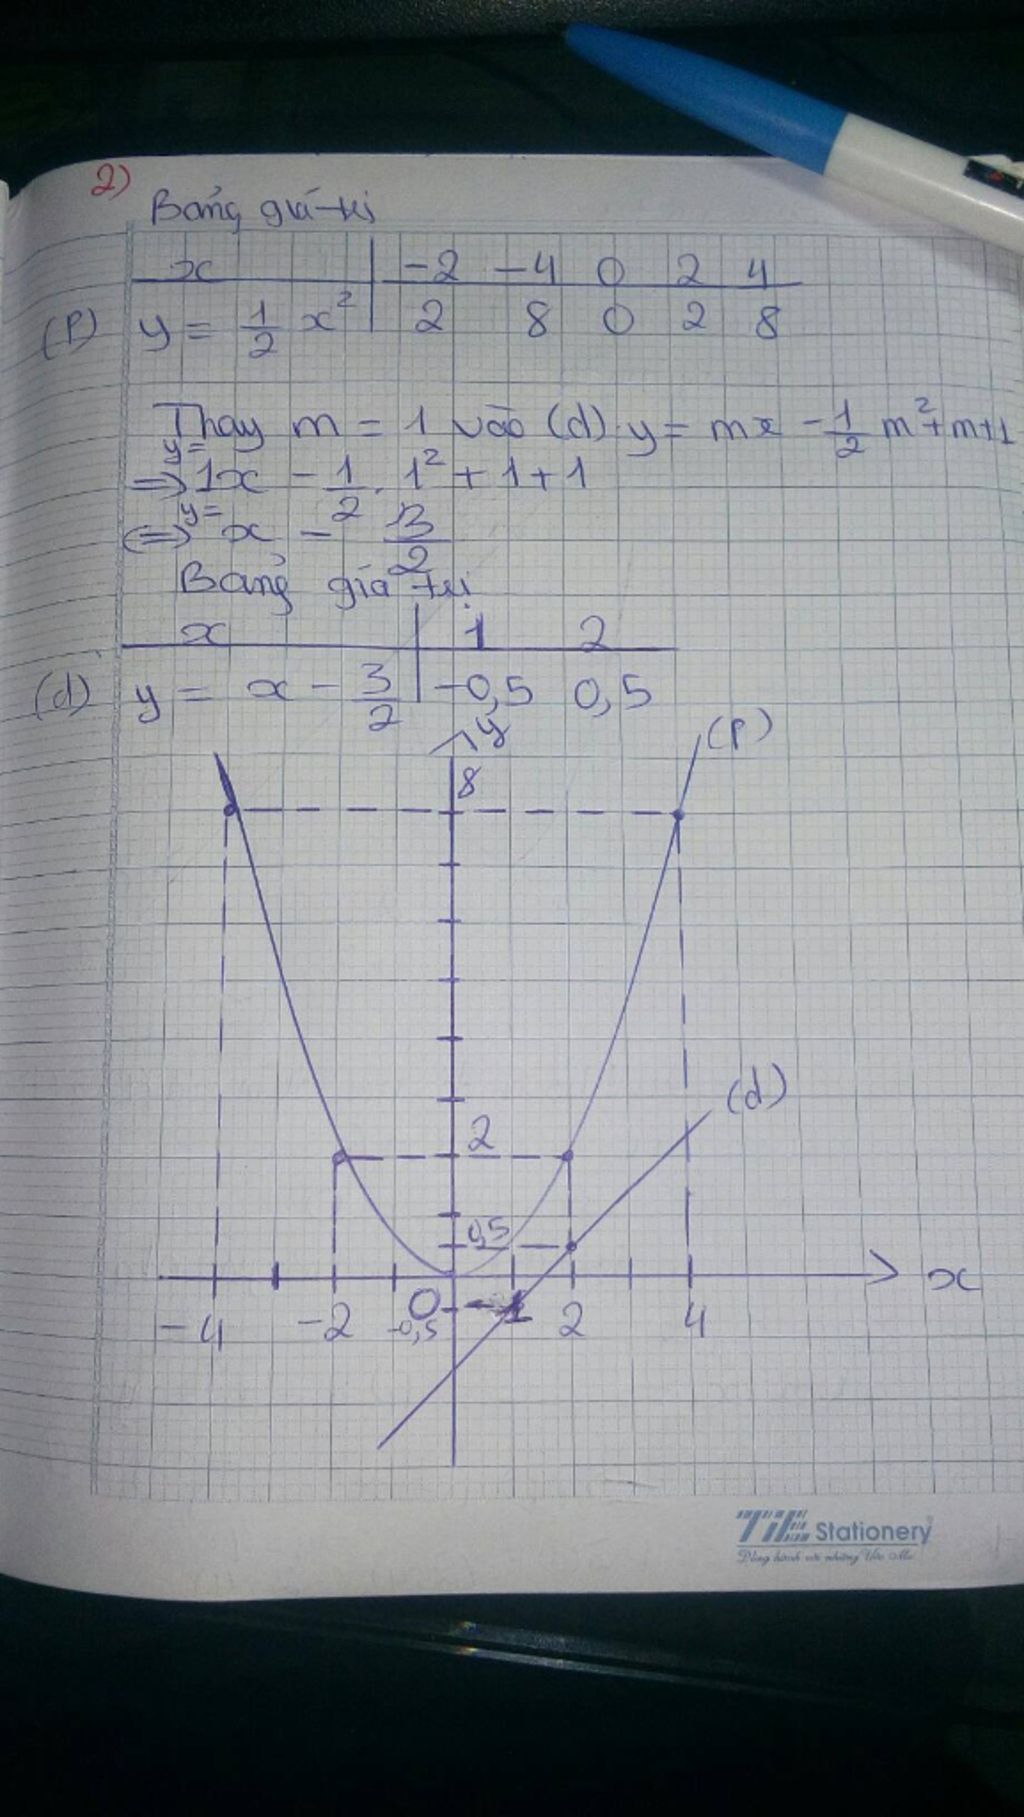 2)
Bảng giá trị
x -2 -4 0 2 4
(P) y = 1/2 x² 2 8 0 2 8
Thay m = 1 vào (d) y = mx - 1/2 m² + m + 1
⇒ y = 1x - 1/2 . 1² + 1 + 1
⇔ y = x - 3/2
Bảng giá trị
x 1 2
(d) y = x - 3/2 -0,5 0,5
y
(P)
8
(d)
2
0,5
x
O
-4 -2 -0,5 1 2 4
TiE Stationery